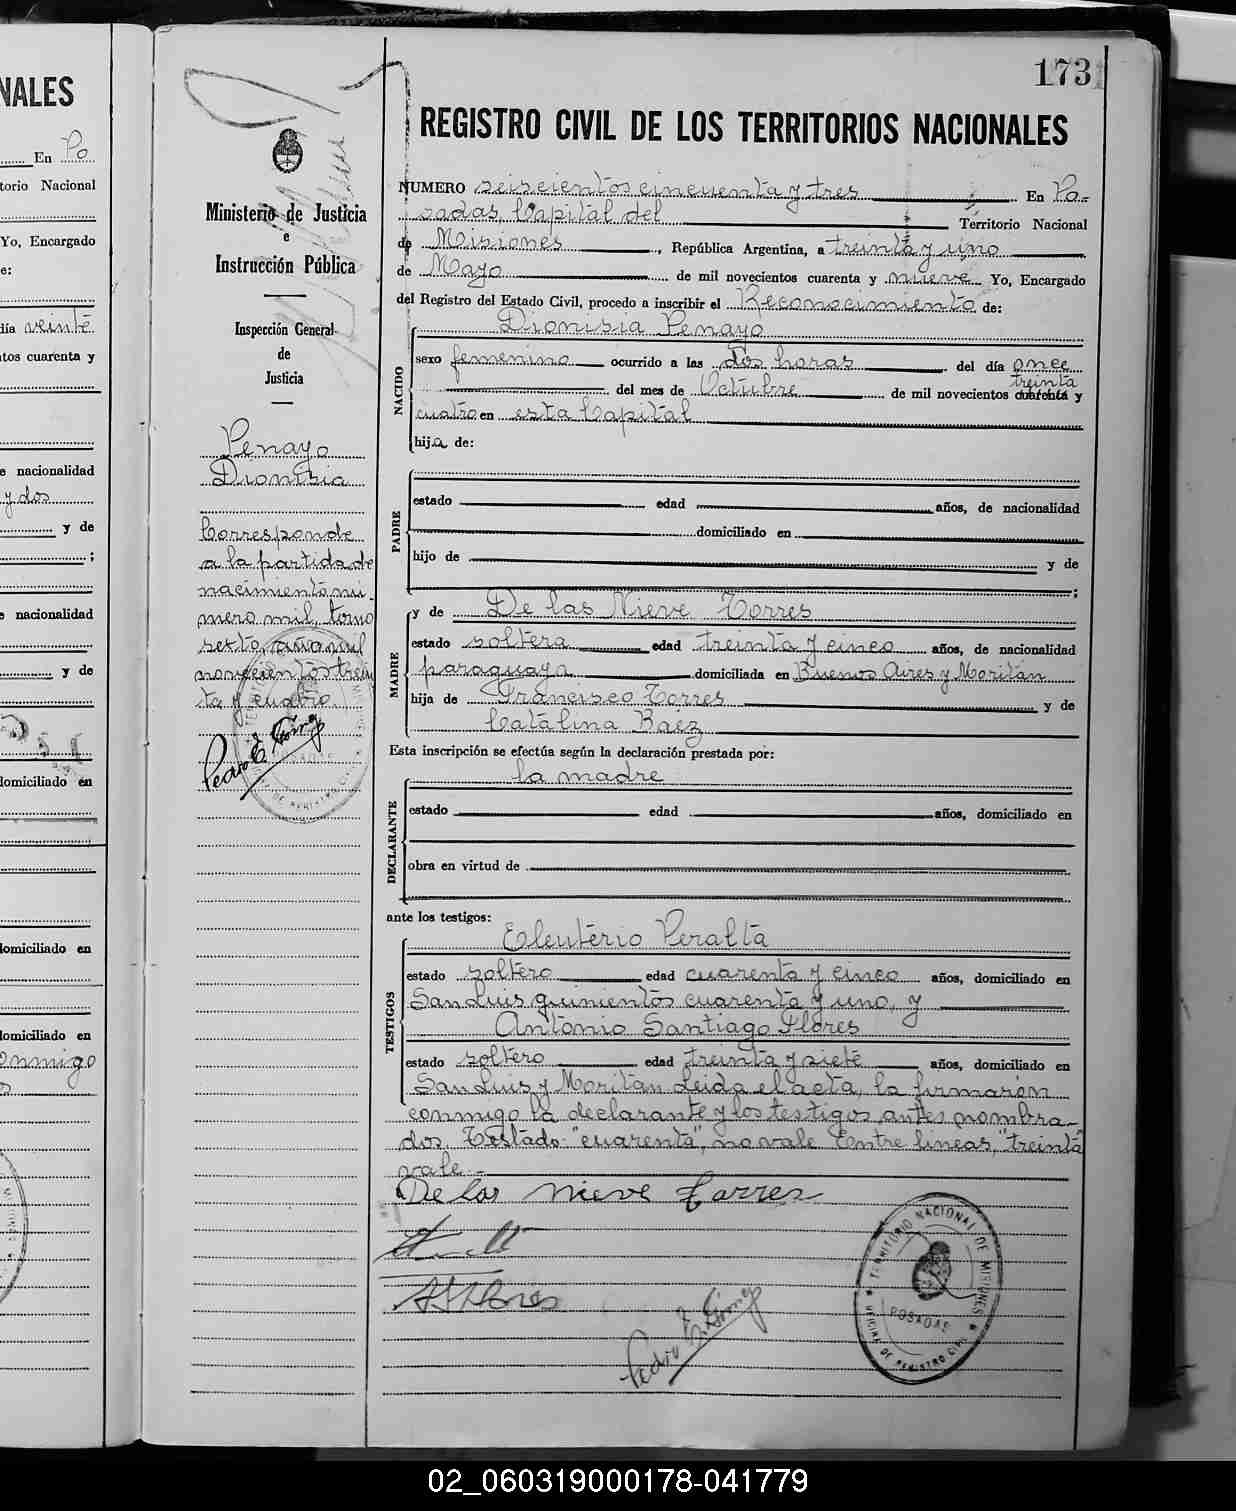 NALES
En Po
torio Nacional
Yo, Encargado
e:
día veinte
tos cuarenta y
e nacionalidad
y dos
y de
;
e nacionalidad
y de
domiciliado en
domiciliado en
domiciliado en
onmigo
173
REGISTRO CIVIL DE LOS TERRITORIOS NACIONALES
Ministerio de Justicia
e
Instrucción Pública
Inspección General
de
Justicia
Penayo
Dionisia
Corresponde
a la partida de
nacimiento nú-
mero mil, tomo
sexto, año mil
novecientos trein
ta y cuatro
Pedro E. Gómez
NUMERO seiscientos cincuenta y tres En Po-
sadas, Capital del Territorio Nacional
de Misiones, República Argentina, a treinta y uno
de Mayo de mil novecientos cuarenta y nueve Yo, Encargado
del Registro del Estado Civil, procedo a inscribir el Reconocimiento de:
Dionisia Penayo
NACIDO
sexo femenino ocurrido a las dos horas del día once
treinta
del mes de Octubre de mil novecientos cuarenta y
cuatro en esta Capital
hija de:
PADRE
estado edad años, de nacionalidad
domiciliado en
hijo de y de
;
MADRE
y de De las Nieve Torres
estado soltera edad treinta y cinco años, de nacionalidad
paraguaya domiciliada en Buenos Aires y Moritán
hija de Francisco Torres y de
Catalina Baez
Esta inscripción se efectúa según la declaración prestada por:
la madre
DECLARANTE
estado edad años, domiciliado en
obra en virtud de
ante los testigos:
TESTIGOS
Eleuterio Peralta
estado soltero edad cuarenta y cinco años, domiciliado en
San Luis quinientos cuarenta y uno, y
Antonio Santiago Flores
estado soltero edad treinta y siete años, domiciliado en
San Luis y Moritán Leida el acta, la firmarón
conmigo la declarante y los testigos antes nombra-
dos. Testado: "cuarenta", no vale Entre lineas, "treinta"
vale.-
De las Nieve Torres
A S Flores
Pedro E. Gómez
TERRITORIO NACIONAL DE MISIONES
POSADAS
OFICINA DE REGISTRO CIVIL
02_060319000178-041779